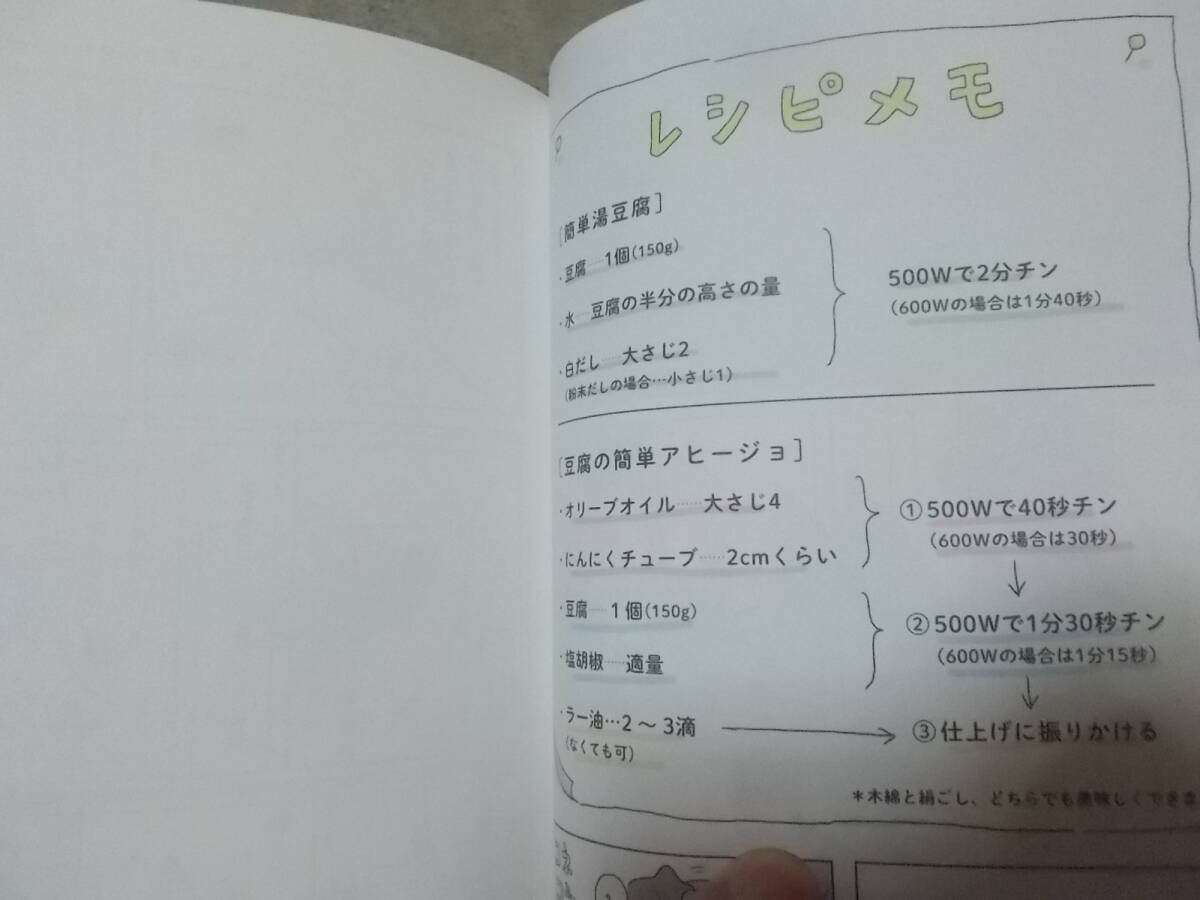 レシピメモ
[簡単湯豆腐]
・豆腐……1個(150g)
・水……豆腐の半分の高さの量
・白だし……大さじ2
(粉末だしの場合…小さじ1)
500Wで2分チン
(600Wの場合は1分40秒)
[豆腐の簡単アヒージョ]
・オリーブオイル……大さじ4
・にんにくチューブ……2cmくらい
①500Wで40秒チン
(600Wの場合は30秒)
・豆腐……1個(150g)
・塩胡椒……適量
②500Wで1分30秒チン
(600Wの場合は1分15秒)
・ラー油…2〜3滴
(なくても可)
③仕上げに振りかける
＊木綿と絹ごし、どちらでも美味しくできま